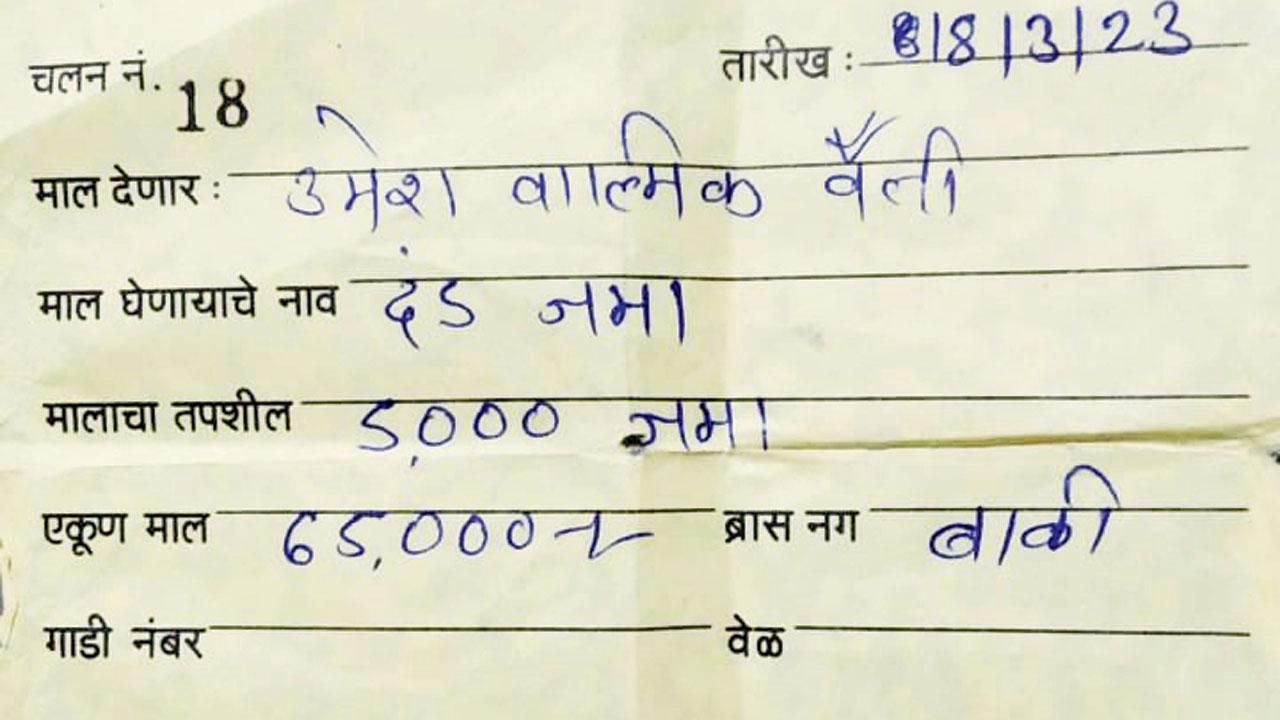 चलन नं. 18 तारीख : 8/3/23
माल देणार : उमेश वाल्मिक वैती
माल घेणायाचे नाव दंड जमा
मालाचा तपशील 5,000 जमा
एकूण माल 65,000/- ब्रास नग बाकी
गाडी नंबर वेळ